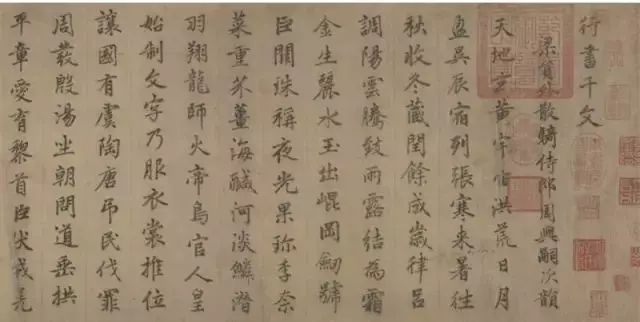 行書千文
梁員外散騎侍郎周興嗣次韻
天地玄黃宇宙洪荒日月
盈昃辰宿列張寒来暑往
秋收冬藏閏餘成歲律呂
調陽雲騰致雨露結為霜
金生麗水玉出崐岡劒號
巨闕珠稱夜光果珎李柰
菜重芥薑海醎河淡鱗潛
羽翔龍師火帝鳥官人皇
始制文字乃服衣裳推位
讓國有虞陶唐吊民伐罪
周發殷湯坐朝問道垂拱
平章愛育黎首臣伏戎羌